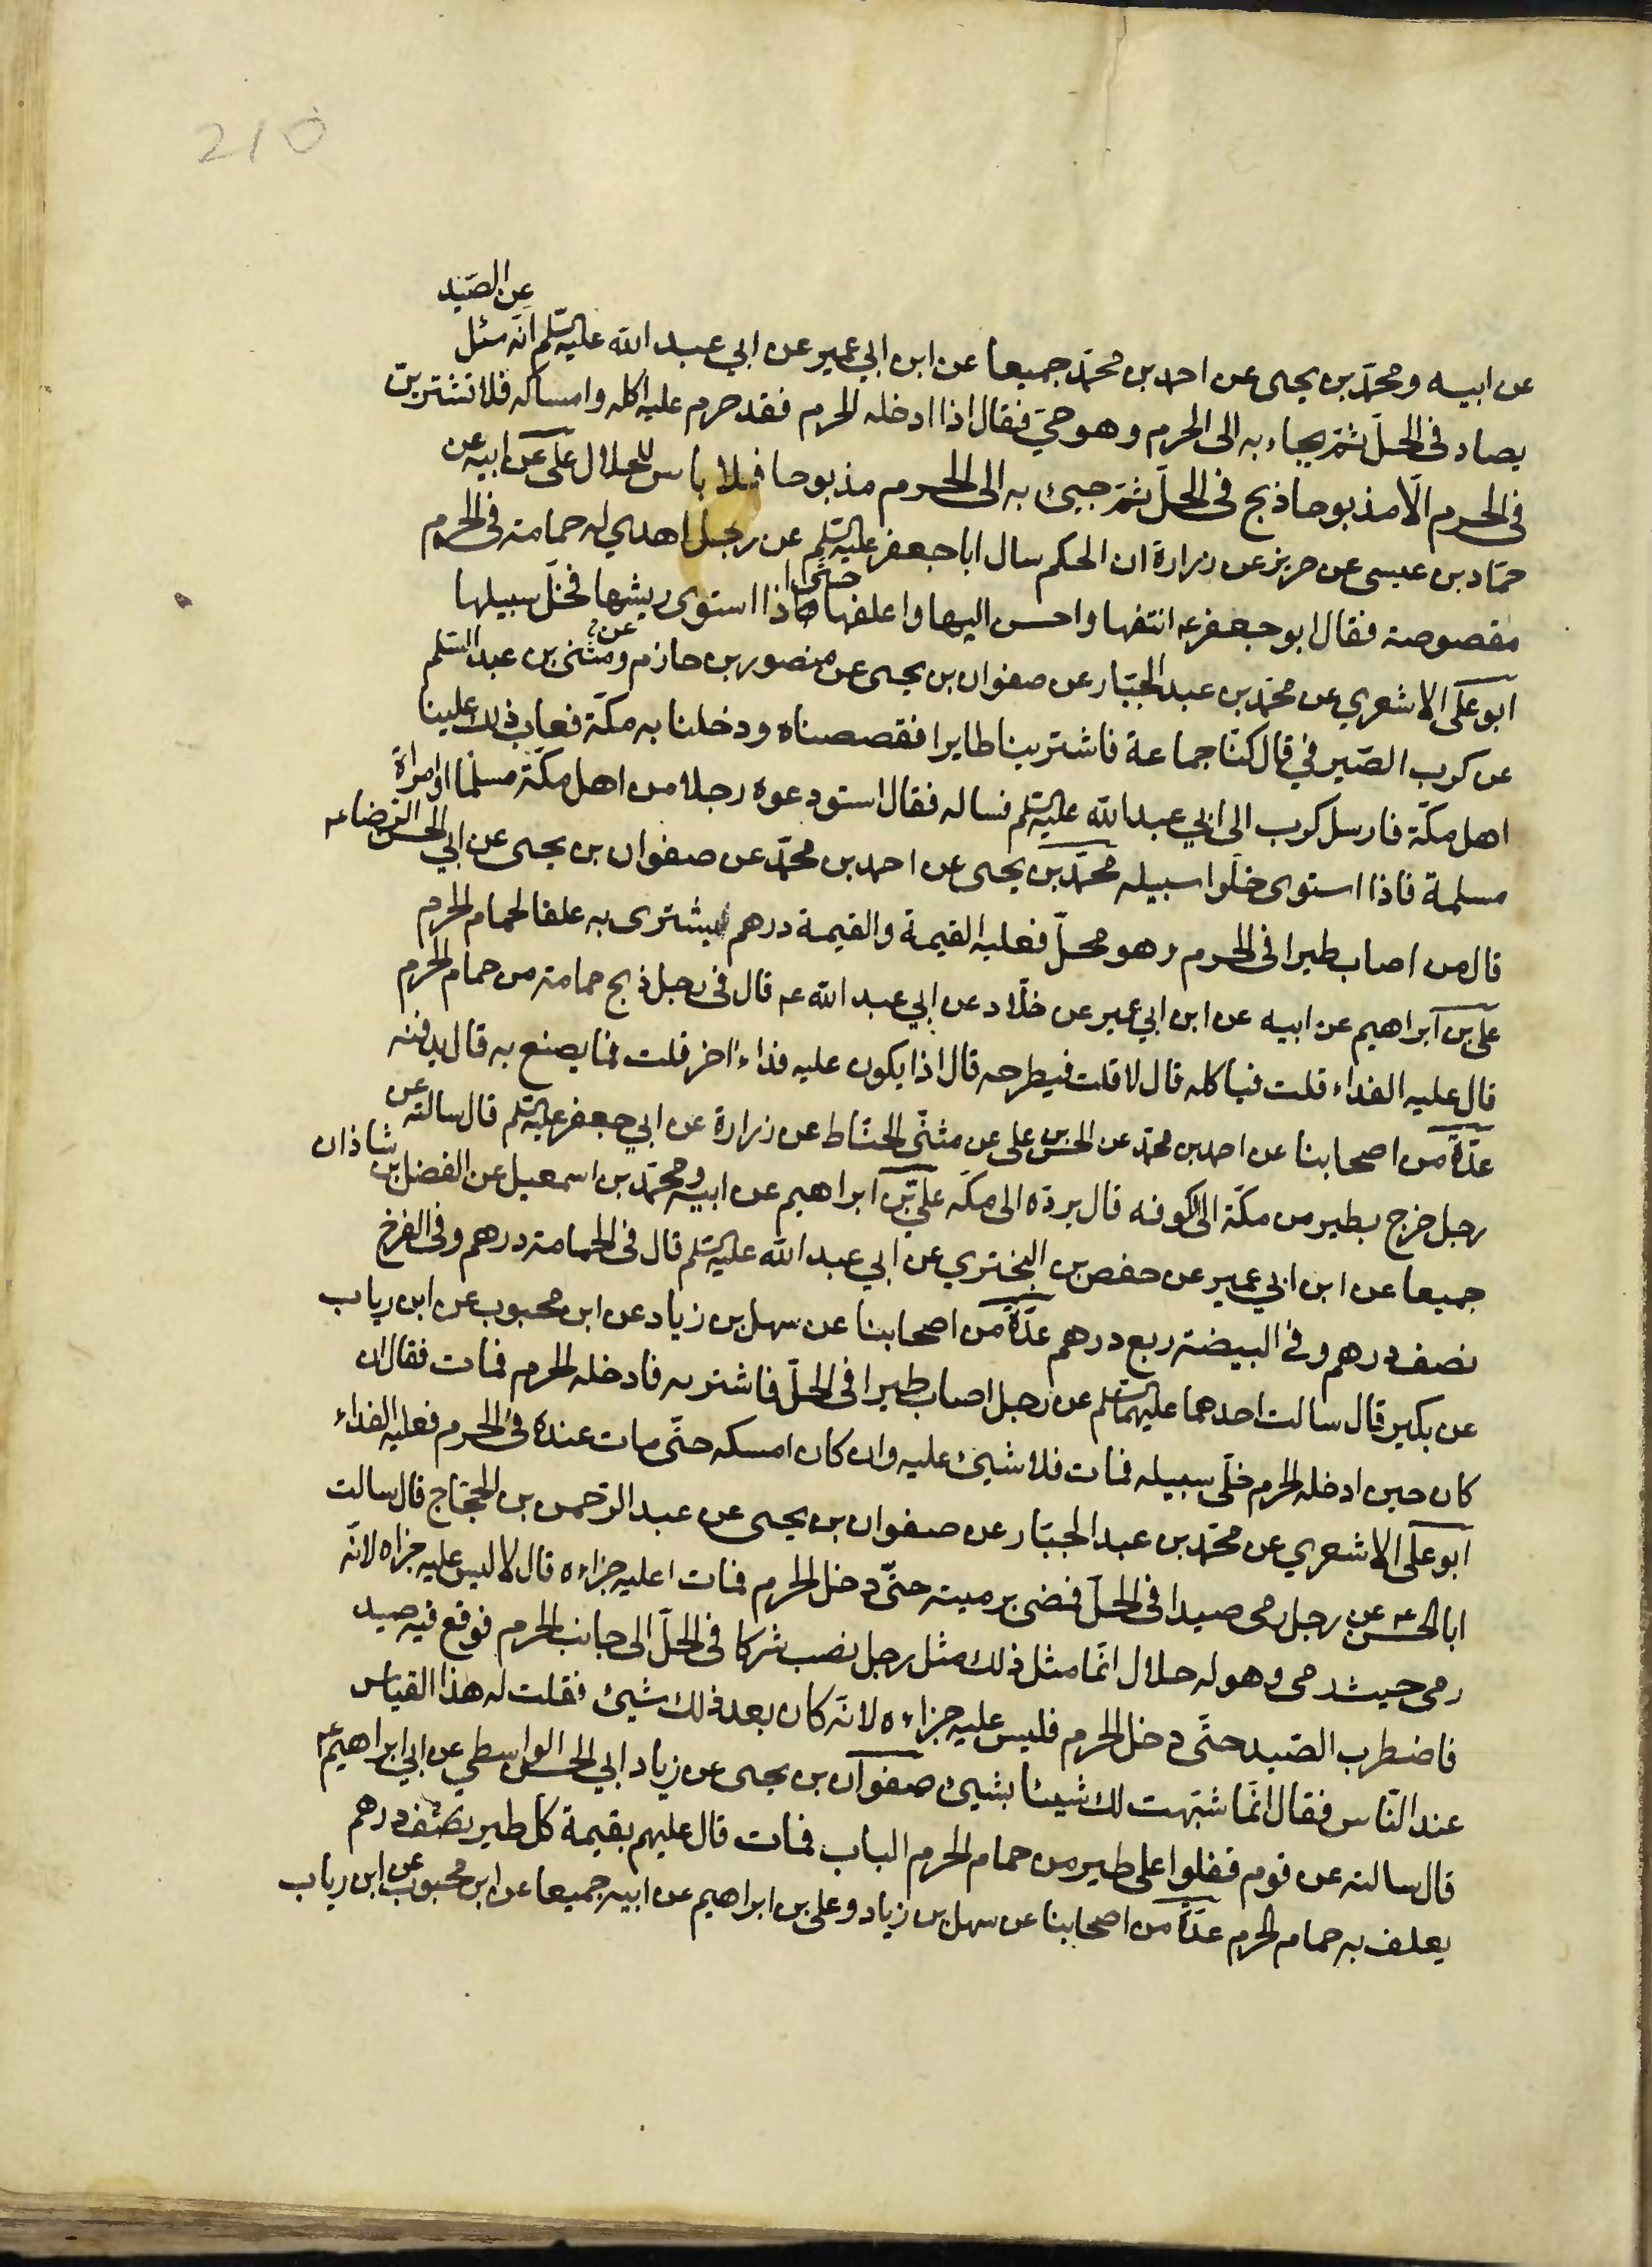 210
عن ابيه ومحمّد بن يحيى عن احمد بن محمّد جميعا عن ابن ابي عمير عن ابي عبد الله عليه السّلم انّه سئل عن الصّيد
يصاد فى الحلّ ثمّ يجاء به الى الحرم وهو حيّ فقال اذا ادخله الحرم فقد حرم عليه اكله وامساكه فلا تشترينّ
فى الحرم الّا مذبوحا ذبح فى الحلّ ثمّ جيئ به الى الحرم مذبوحا فلا باس للحلال علىّ عن ابيه عن
حمّاد بن عيسى عن حريز عن زرارة ان الحكم سال ابا جعفر عليه السّلم عن رجل اهدي له حمامة فى الحرم
مقصوصة فقال ابو جعفر عه انتفها واحسن اليها واعلفها حتّى اذا استوى ريشها فخلّ سبيلها
ابو علىّ الاشعري عن محمّد بن عبد الجبّار عن صفوان بن يحيى عن منصور بن حازم وعن مثنى بن عبد السّلم
عن كرب الصّيرفي قال كنّا جماعة فاشترينا طايرا فقصصناه ودخلنا به مكّة فعاب ذلك علينا
اهل مكّة فارسل كرب الى ابي عبد الله عليه السّلم نساله فقال استودعوه رجلا من اهل مكّة مسلما او امراة
مسلمة فاذا استوى خلّوا سبيله محمّد بن يحيى عن احمد بن محمّد عن صفوان بن يحيى عن ابي الحسن الرّضا عه
قال من اصاب طيرا فى الحرم وهو محلّ فعليه القيمة والقيمة درهم يشترى به علفا لحمام الحرم
علىّ بن ابراهيم عن ابيه عن ابن ابي عمير عن خلّاد عن ابي عبد الله عه قال فى رجل ذبح حمامة من حمام الحرم
قال عليه الفداء قلت فياكله قال لا قلت فيطرحه قال اذا يكون عليه فداء اخر قلت فما يصنع به قال يدفنه
عدّة من اصحابنا عن احمد بن محمّد عن الحسن بن على عن مثنّى الحنّاط عن زرارة عن ابي جعفر عليه السّلم قال سالته عن
رجل خرج بطير من مكّة الى الكوفه قال يردّه الى مكّه علىّ بن ابراهيم عن ابيه ومحمّد بن اسمعيل عن الفضل بن شاذان
جميعا عن ابن ابي عمير عن حفص بن البختري عن ابي عبد الله عليه السّلم قال فى الحمامة درهم وفى الفرخ
نصف درهم وفى البيضة ربع درهم عدّة من اصحابنا عن سهل بن زياد عن ابن محبوب عن ابن رياب
عن بكير قال سالت احدهما عليهما السّلم عن رجل اصاب طيرا فى الحلّ فاشتريه فادخله الحرم فمات فقال ان
كان حين ادخله الحرم خلّى سبيله فمات فلا شيئ عليه وان كان امسكه حتّى مات عنده فى الحرم فعليه الفداء
ابو على الاشعري عن محمّد بن عبد الجبّار عن صفوان بن يحيى عن عبد الرّحمن بن الحجّاج قال سالت
ابا الحسن عه عن رجل رمى صيدا فى الحلّ فمضى برميته حتّى دخل الحرم فمات اعليه جزاءه قال لا ليس عليه جزاه لانّه
رمى حيث رمى وهو له حلال انّما مثل ذلك مثل رجل نصب شركا فى الحلّ الى جانب الحرم فوقع فيه صيد
فاضطرب الصّيد حتّى دخل الحرم فليس عليه جزاءه لانّه كان بعد ذلك شيئ فقلت له هذا القياس
عند النّاس فقال انّما شبّهت لك شيئا بشيئ صفوان بن يحيى عن زياد ابي الحسن الواسطي عن ابي ابراهيم عه
قال سالته عن قوم قفلوا على طير من حمام الحرم الباب فمات قال عليهم بقيمة كلّ طير نصف درهم
يعلف به حمام الحرم عدّة من اصحابنا عن سهل بن زياد وعلى بن ابراهيم عن ابيه جميعا عن ابن محبوب عن ابن رياب